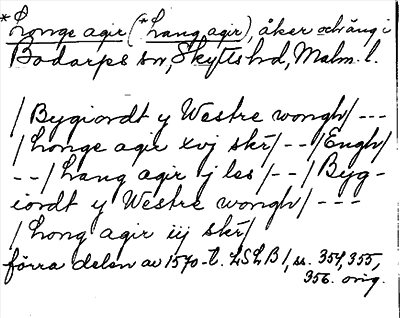 *Longe agir (*Lang agir), åker och äng i
Bodarps sn, Skytts hd, Malm. l.
/Bygiordt y Westre wongh/ ---
/Longe agir xvj skr/ -- /Engh/
-- /Lang agir ij les/ -- /Byg-
iordt y Westre wongh/ ---
/Long agir iij skr/
förra delen av 1570-t. LSLB1, ss. 354, 355,
356. orig.